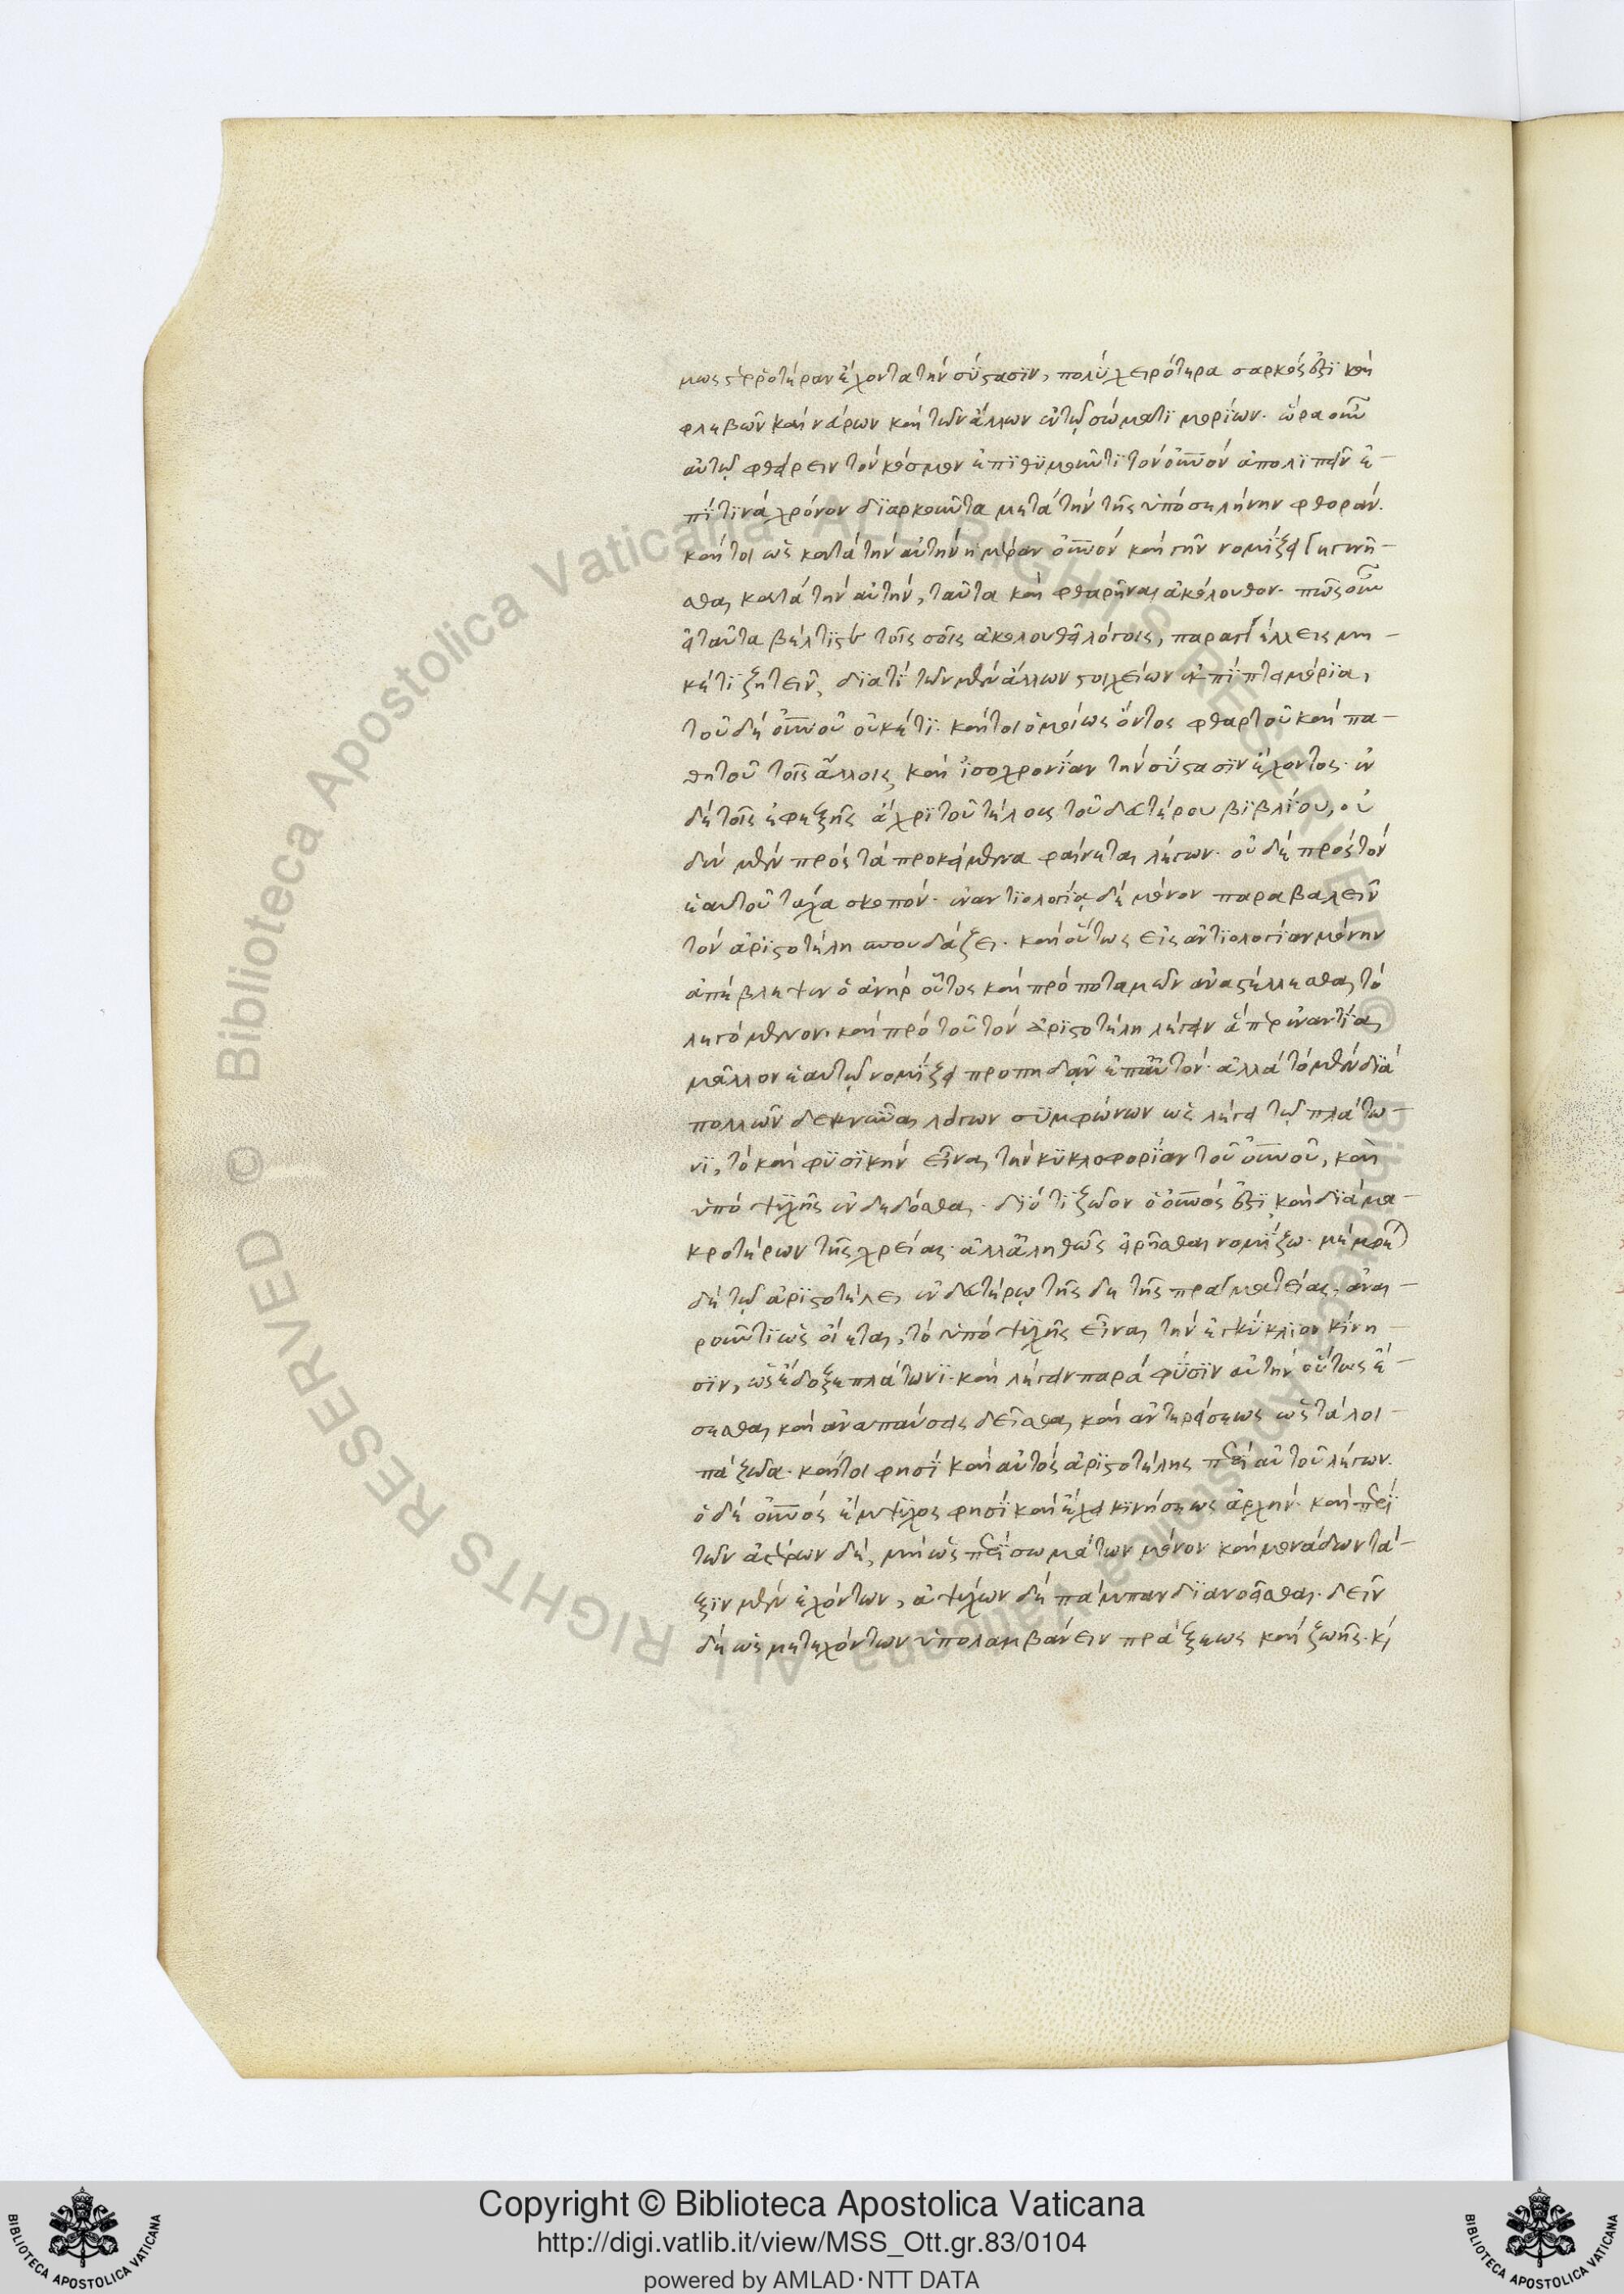 μως στερροτέραν ἔχοντα τὴν σύστασιν, πολὺ χειρότερα σαρκός ἐστι καὶ
φλεβῶν καὶ νεύρων καὶ τῶν ἄλλων ἐν τῷ σώματι μορίων. ὥρα οὖν
αὐτῷ φθείρειν τὸν κόσμον ἐπιθυμοῦντι τὸν οὐνον ἀπολιπεῖν ἐ-
πί τινα χρόνον διαρκοῦντα μετὰ τὴν τῆς ὑπὸ σελήνην φθοράν.
καίτοι ὡς κατὰ τὴν αὐτὴν ἡμέραν οὐνον καὶ γῆν νομίζει γεγενῆ-
σθαι κατὰ τὴν αὐτὴν, ταῦτα καὶ φθαρῆναι ἀκόλουθον. πῶς οὖν
ταῦτα βέλτιστε τοῖς σοῖς ἀκολουθεῖ λόγοις, παραγγέλλεις μη-
κέτι ζητεῖν, διατί τῶν μὲν ἄλλων στοιχείων ἐκπίπτει μόρια,
τοῦ δὲ οὐνοῦ οὐκέτι. καίτοι ὁμοίως ὄντος φθαρτοῦ καὶ πα-
θητοῦ τοῖς ἄλλοις, καὶ ἰσοχρονίαν τὴν σύστασιν ἔχοντος. ἐν
δὲ τοῖς ἐφεξῆς ἄχρι τοῦ τέλους τοῦ δευτέρου βιβλίου, οὐ
δὲν μὲν πρὸς τὰ προκείμενα φαίνεται λέγων. οὐδὲ πρὸς τὸν
ἑαυτοῦ τάχα σκοπόν. ἐναντιολογίᾳ δὲ μόνον παραβαλεῖν
τὸν ἀριστοτέλη σπουδάζει. καὶ οὕτως εἰς ἀντιολογίαν μόνην
ἀπέβλεψεν ὁ ἀνὴρ οὗτος καὶ πρὸ ποταμῶν ἀναστέλλεσθαι τὸ
λεγόμενον. καὶ πρὸ τοῦ τὸν ἀριστοτέλη λέγειν ἅπερ ἐναντία
μᾶλλον ἑαυτῷ νομίζει προπηδᾷν ἐπ' αὐτόν. ἀλλὰ τὸ μὲν διὰ
πολλῶν δεικνῦναι λόγων συμφώνων ὡς λέγει τῷ πλάτω-
νι, τὸ καὶ φυσικὴν εἶναι τὴν κυκλοφορίαν τοῦ οὐνοῦ, καὶ
ὑπὸ ψυχῆς ἐνδεδόσθαι. διότι ζῶον ὁ οὐνος ἐστι, καὶ διὰ μα-
κροτέρων τῆς χρείας. ἀλλ' ἀληθῶς εἰρῆσθαι νομίζω. μέμφε
δὲ τῷ ἀριστοτέλει ἐν δευτέρῳ τῆς δε τῆς πραγματείας, ἀναι-
ροῦντι ὡς οἴεται, τὸ ὑπὸ ψυχῆς εἶναι τὴν ἐγκύκλιον κίνη-
σιν, ὡς ἔδοξε πλάτωνι. καὶ λέγειν παρὰ φύσιν αὐτὴν οὕτως ἔ-
σεσθαι καὶ ἀναπαύσεις δεῖσθαι καὶ ἀντερείσεως ὡς τὰ λοι-
πὰ ζῶα. καίτοι φησὶ καὶ αὐτὸς ἀριστοτέλης περὶ αὐτοῦ λέγων.
ὁ δὲ οὐνος ἔμψυχος φησὶ καὶ ἔχει κινήσεως ἀρχήν. καὶ περὶ
τῶν ἀστέρων δὲ, μὴ ὡς περὶ σωμάτων μόνον καὶ μονάδων τά-
ξιν μὲν ἐχόντων, ἀψύχων δὲ πάμπαν διανοεῖσθαι. δεῖν
δὲ ὡς μετεχόντων ὑπολαμβάνειν πράξεως καὶ ζωῆς. κἀ
Copyright © Biblioteca Apostolica Vaticana
http://digi.vatlib.it/view/MSS_Ott.gr.83/0104
powered by AMLAD·NTT DATA